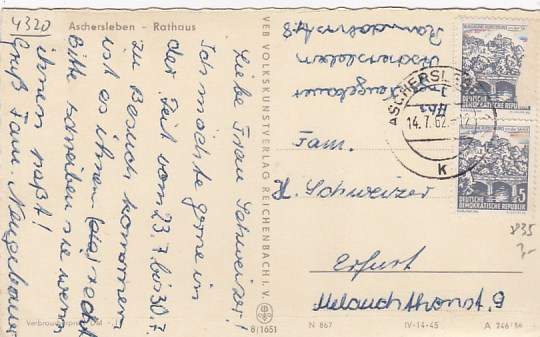 4320
Aschersleben - Rathaus
Liebe Frau Schweizer!
Ich möchte gerne in
der Zeit vom 23.7. bis 30.7.
zu Besuch kommen,
ist es ihnen (die) recht
Bitte schreiben sie wenn
ihnen paßt!
Gruß Fam. Neugebauer
Verbraucherpreis DM
VEB VOLKSKUNSTVERLAG REICHENBACH I. V.
8/1651
Neugebauer
Aschersleben
ASCHERSLEBEN
1
14.7.62.-12
K
DEUTSCHE
DEMOKRATISCHE REPUBLIK
DEUTSCHE
DEMOKRATISCHE REPUBLIK
5
Fam.
H. Schweizer
Erfurt
Melanchthonst. 9
835
3,-
N 867
IV-14-45
A 246/58